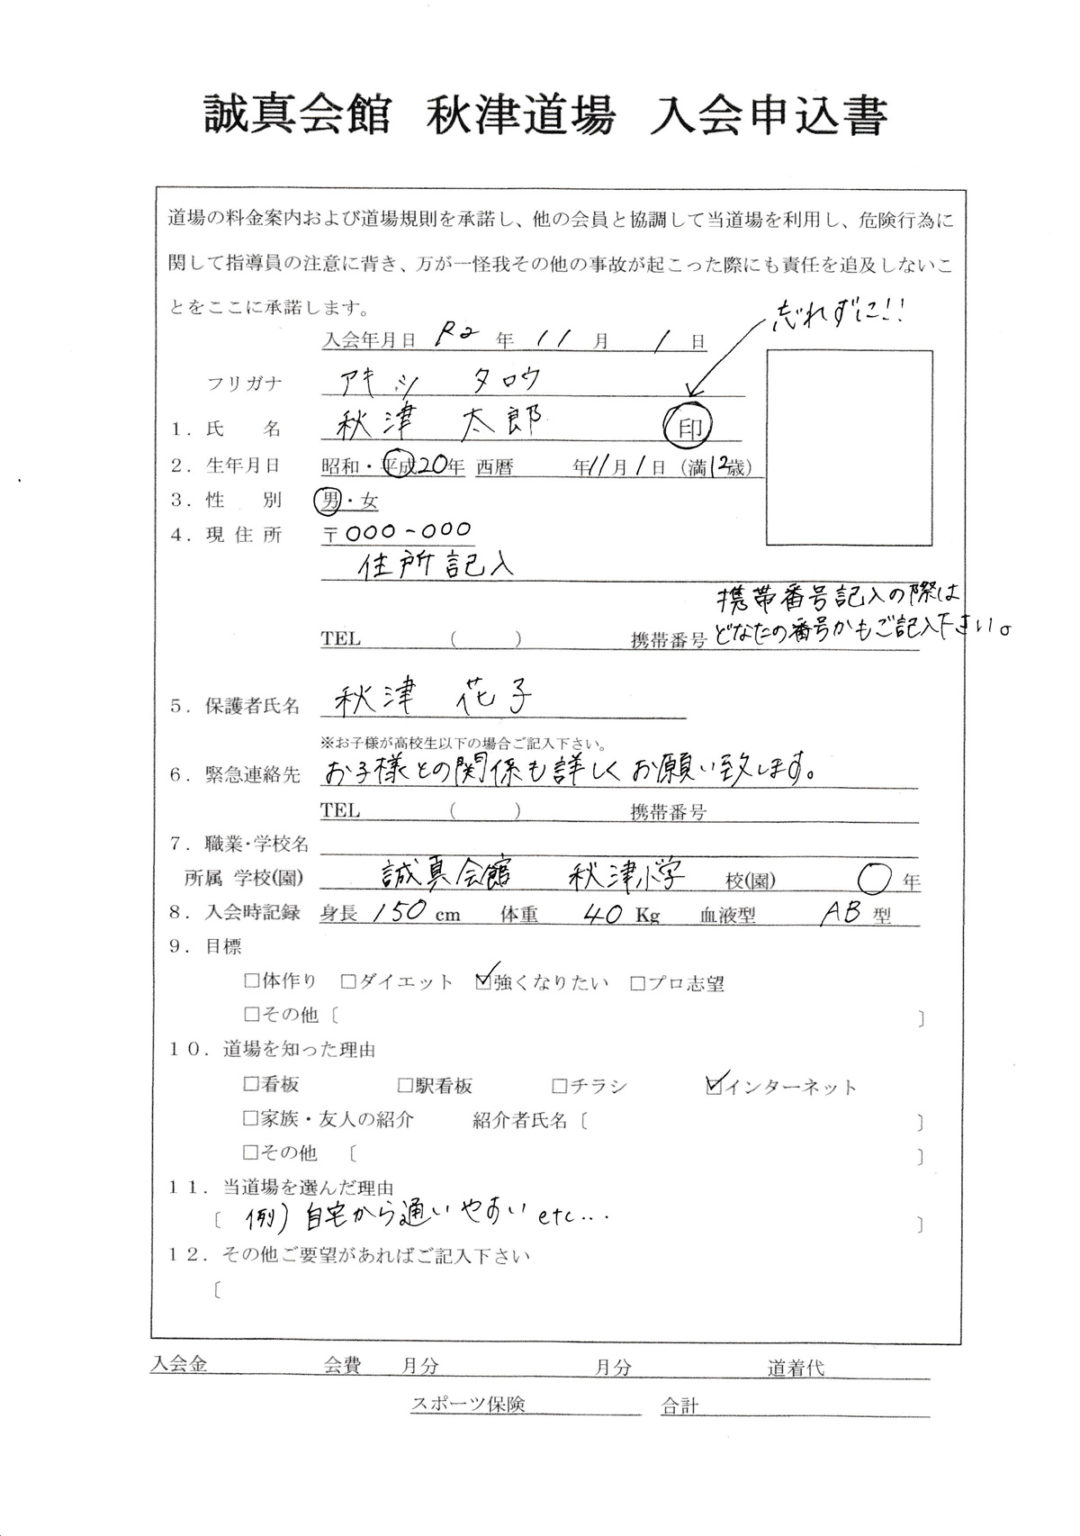 誠真会館 秋津道場 入会申込書
道場の料金案内および道場規則を承諾し、他の会員と協調して当道場を利用し、危険行為に
関して指導員の注意に背き、万が一怪我その他の事故が起こった際にも責任を追及しないこ
とをここに承諾します。
忘れずに!!
入会年月日 R2 年 11 月 1 日
フリガナ アキツ タロウ
1. 氏 名 秋津 太郎 印
2. 生年月日 昭和・平成20年 西暦 年11月1日 (満12歳)
3. 性 別 男・女
4. 現 住 所 〒000-000
住所記入
携帯番号記入の際は
どなたの番号かもご記入下さい。
TEL ( ) 携帯番号
5. 保護者氏名 秋津 花子
※お子様が高校生以下の場合ご記入下さい。
6. 緊急連絡先 お子様との関係も詳しくお願い致します。
TEL ( ) 携帯番号
7. 職業・学校名
所属 学校(園) 誠真会館 秋津小学 校(園) ○ 年
8. 入会時記録 身長 150 cm 体重 40 Kg 血液型 AB 型
9. 目標
□体作り □ダイエット ☑強くなりたい □プロ志望
□その他〔 〕
10. 道場を知った理由
□看板 □駅看板 □チラシ ☑インターネット
□家族・友人の紹介 紹介者氏名〔 〕
□その他 〔 〕
11. 当道場を選んだ理由
〔 例) 自宅から通いやすい etc... 〕
12. その他ご要望があればご記入下さい
〔
入会金 会費 月分 月分 道着代
スポーツ保険 合計